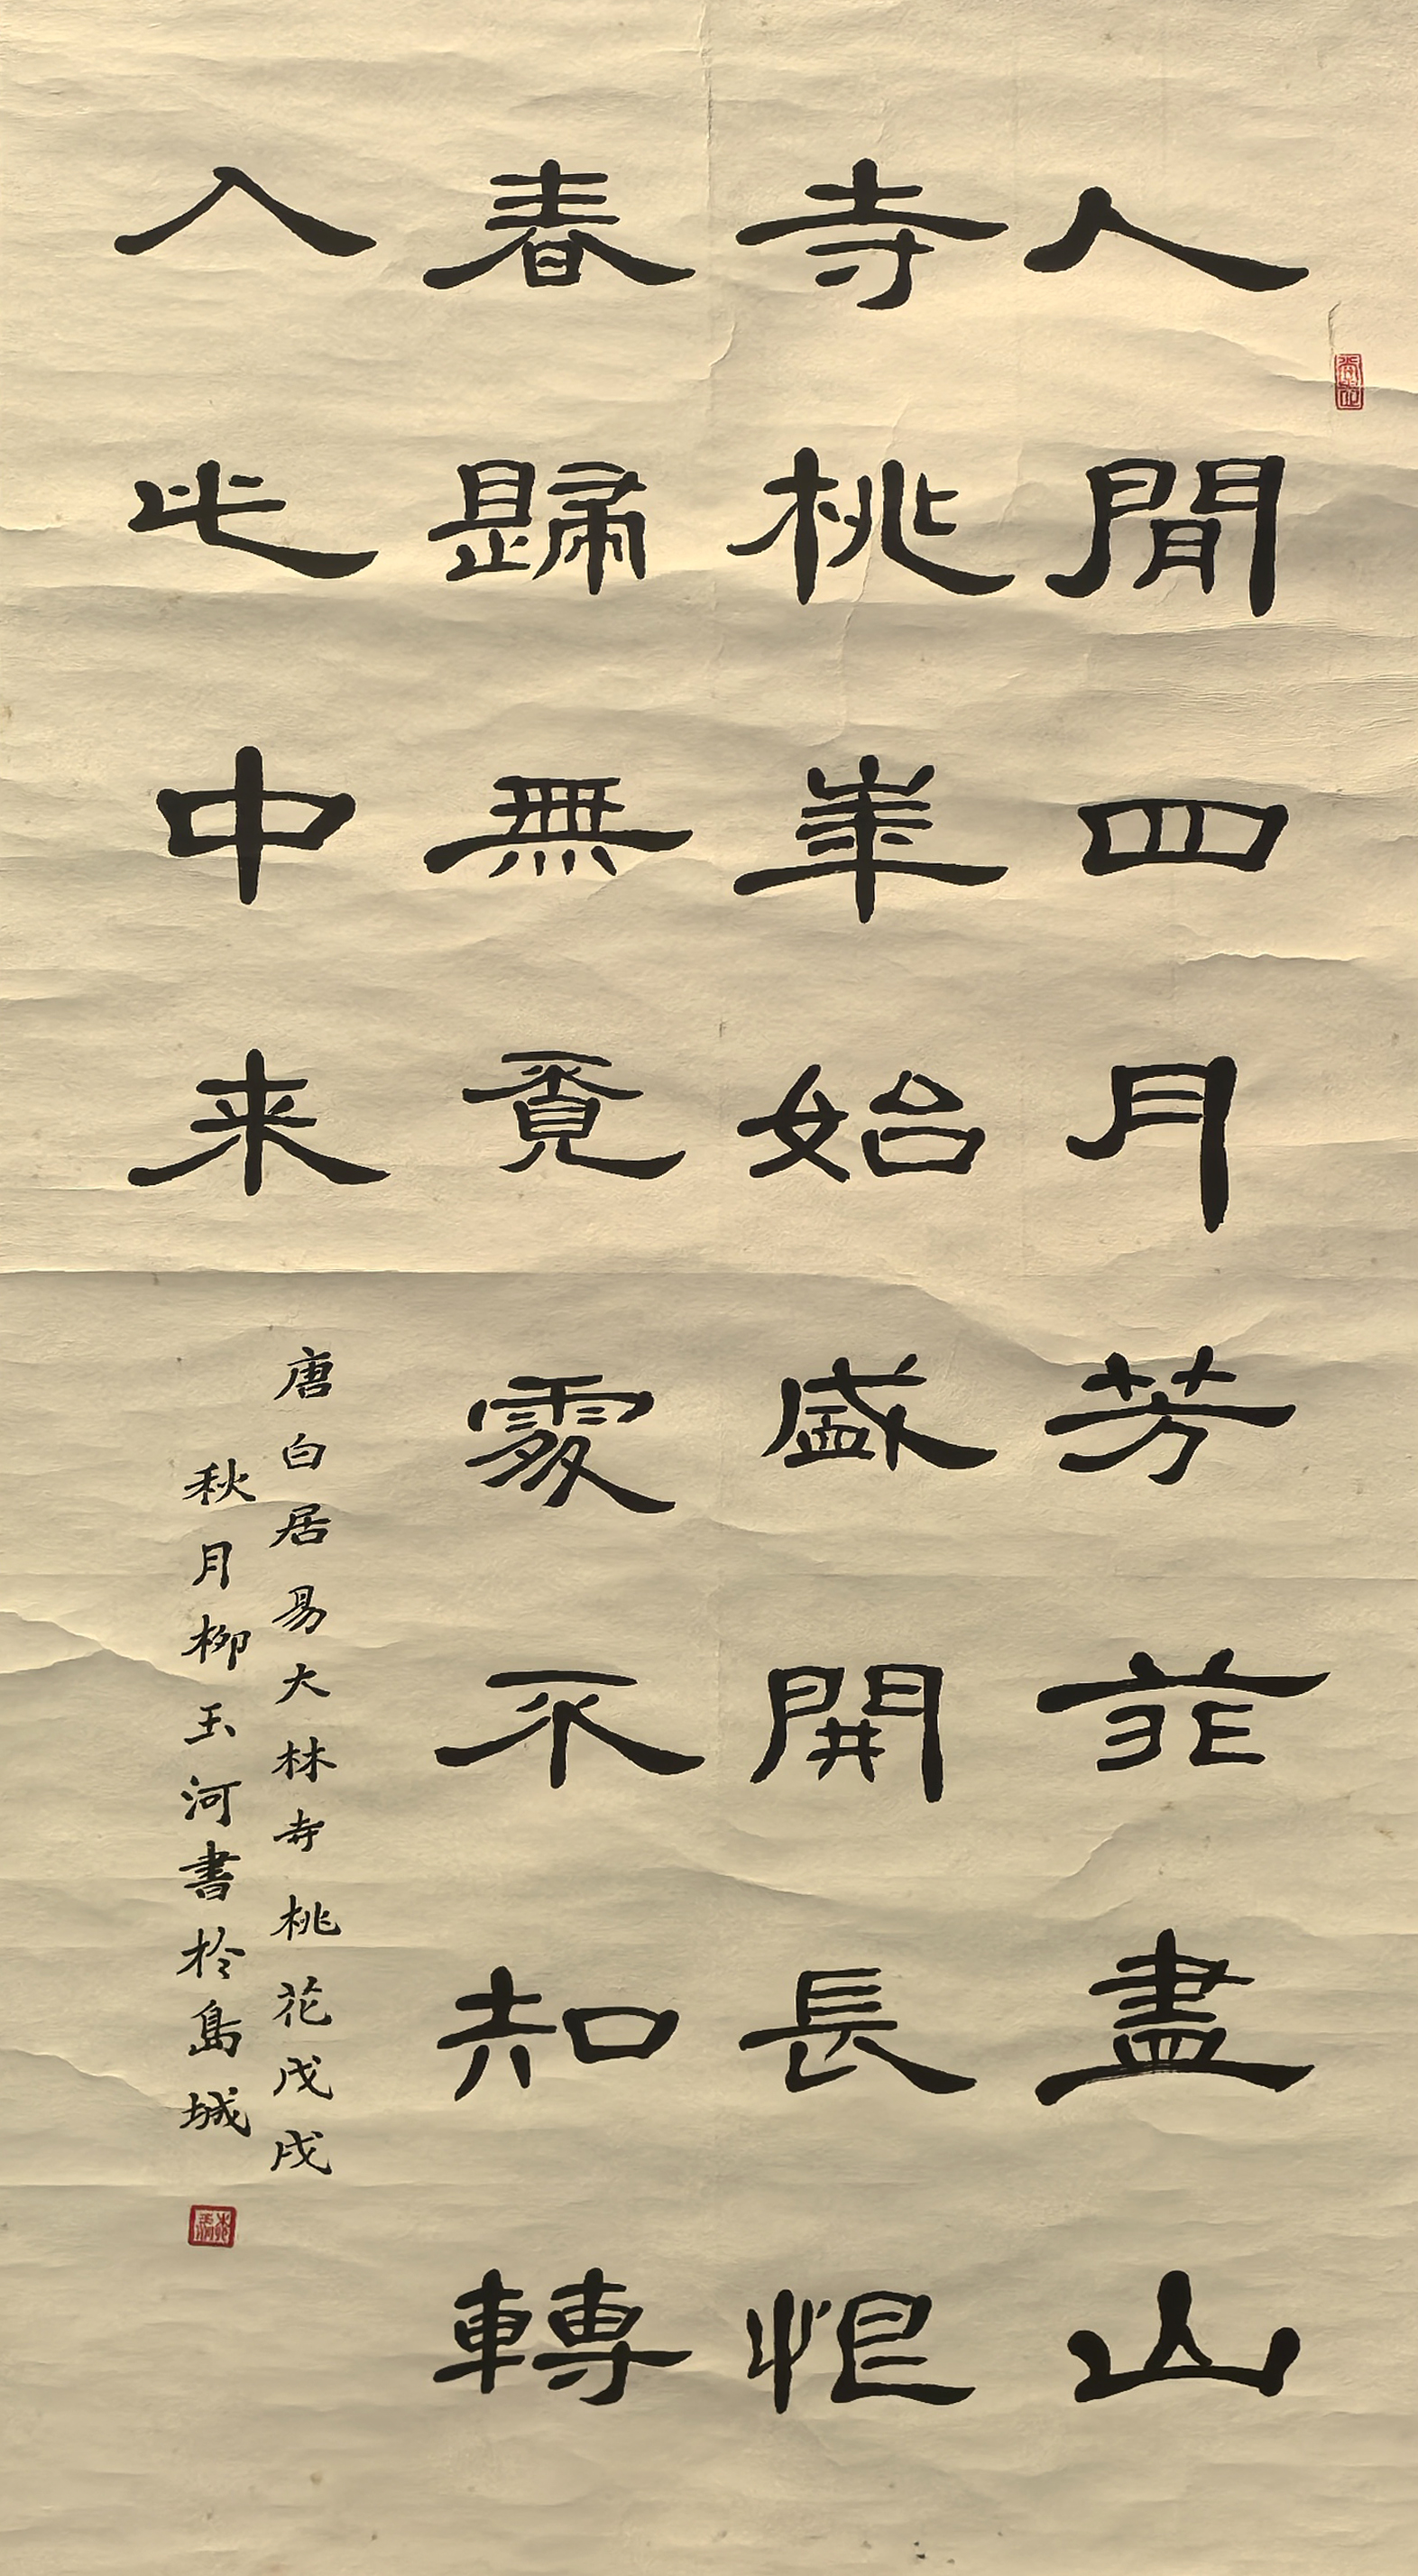 人間四月芳菲盡山
寺桃華始盛開長恨
春歸無覓處不知轉
入此中来
唐白居易大林寺桃花戊戌
秋月柳玉河書於島城